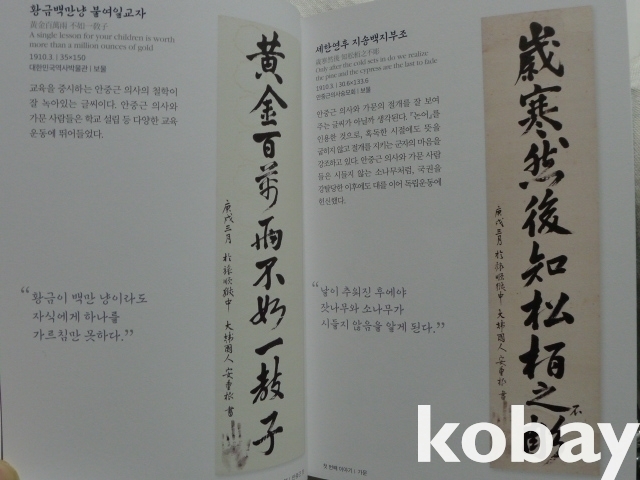 황금백만냥 불여일교자
黃金百萬兩 不如一敎子
A single lesson for your children is worth
more than a million ounces of gold
1910.3 | 35×150
대한민국역사박물관 | 보물
교육을 중시하는 안중근 의사의 철학이
잘 녹아있는 글씨이다. 안중근 의사와
가문 사람들은 학교 설립 등 다양한 교육
운동에 뛰어들었다.
“황금이 백만 냥이라도
자식에게 하나를
가르침만 못하다.”
黃金百萬兩不如一敎子
庚戌三月 於旅順獄中 大韓國人 安重根 書
세한연후 지송백지부조
Only after the cold sets in do we realize
the pine and the cypress are the last to fade
1910.3 | 30.6×133.6
안중근의사숭모회 | 보물
안중근 의사와 가문의 절개를 잘 보여
주는 글씨가 아닐까 생각된다. 『논어』를
인용한 것으로, 혹독한 시절에도 뜻을
굽히지 않고 절개를 지키는 군자의 마음을
강조하고 있다. 안중근 의사와 가문 사람
들은 시들지 않는 소나무처럼, 국권을
강탈당한 이후에도 대를 이어 독립운동에
헌신했다.
“날이 추워진 후에야
잣나무와 소나무가
시들지 않음을 알게 된다.”
歲寒然後知松栢之不彫
庚戌三月 於旅順獄中 大韓國人 安重根 書
첫 번째 이야기 | 가문
kobay